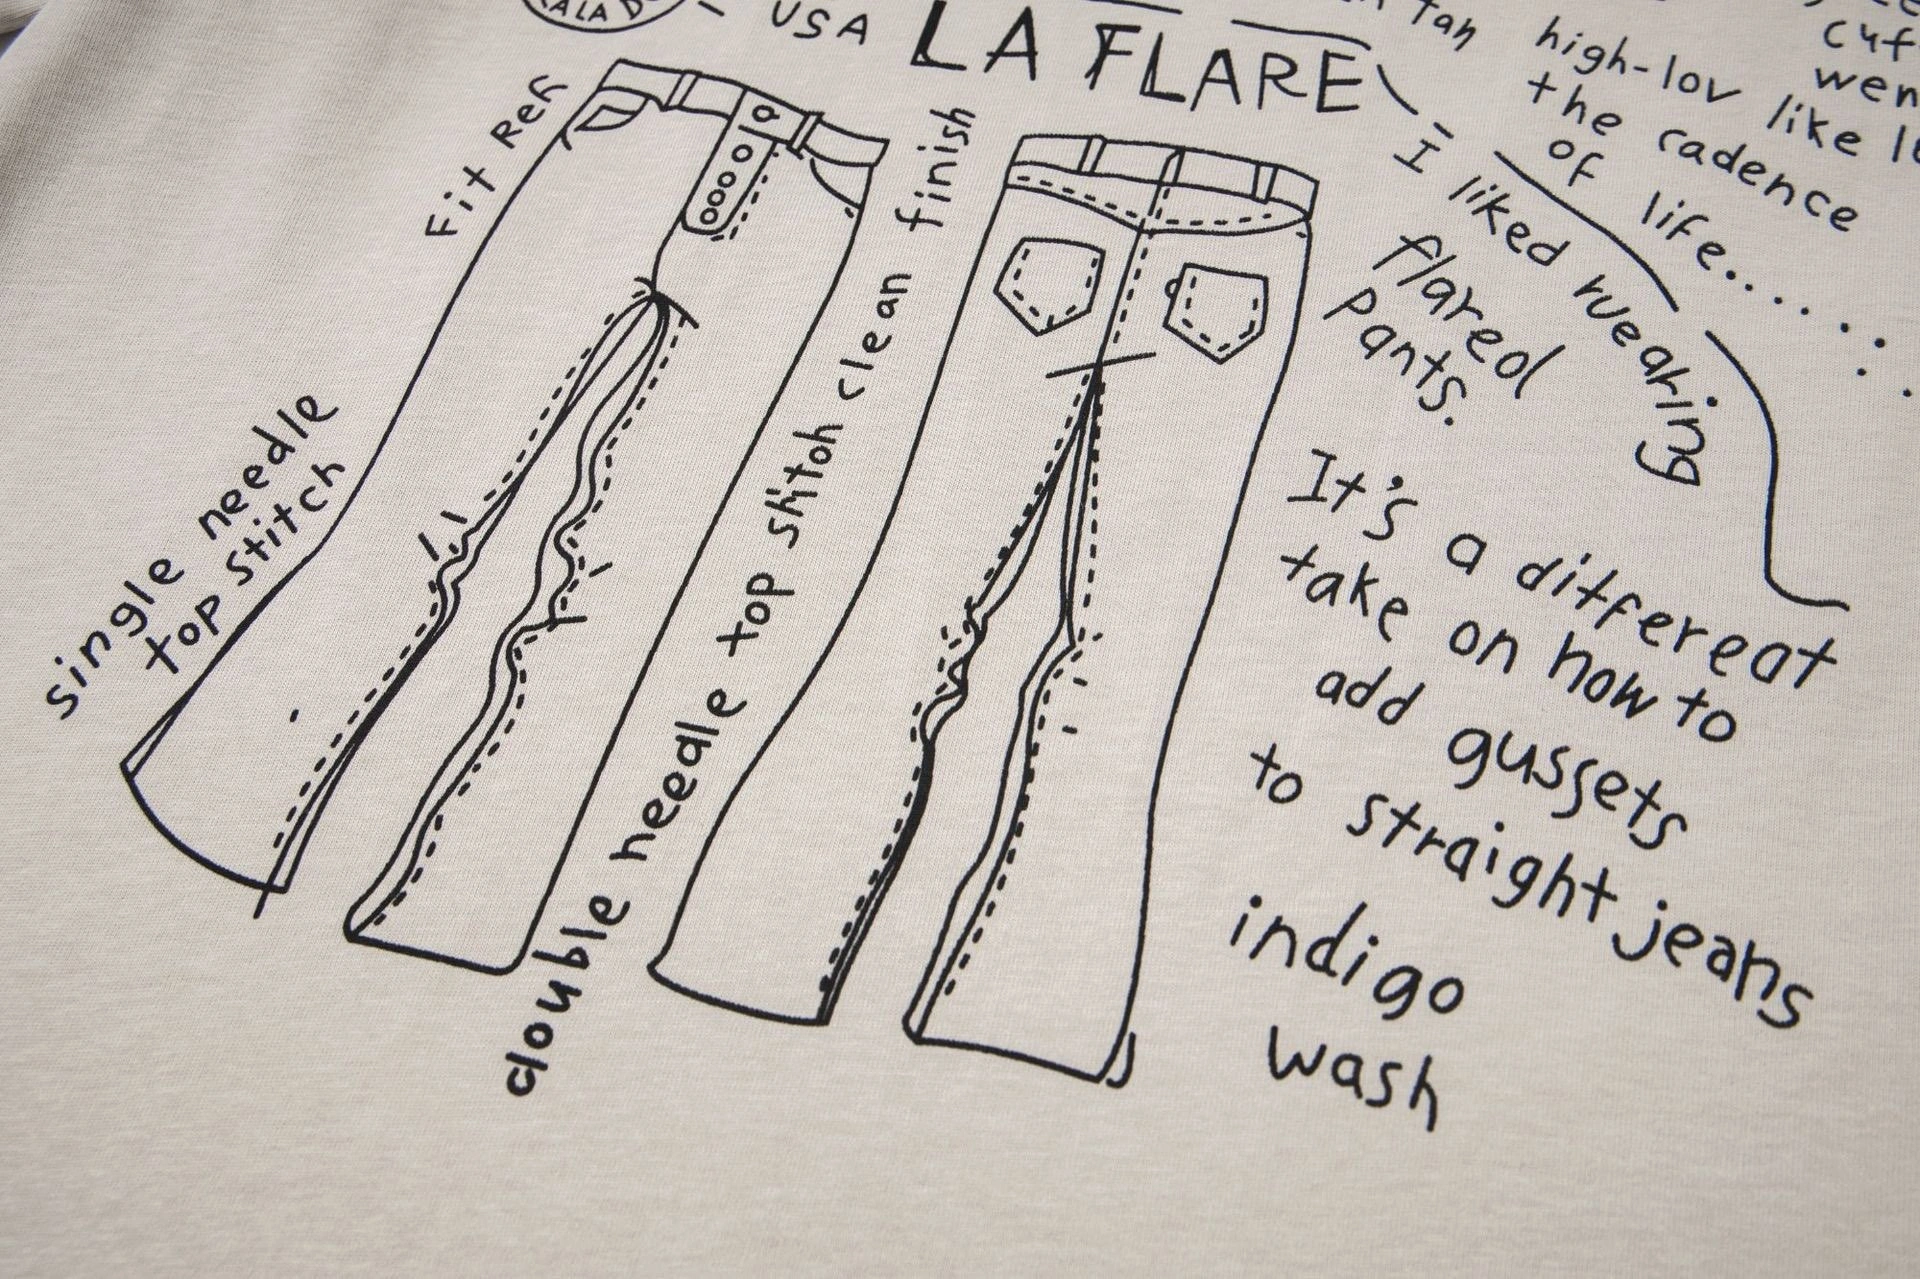 USA
LA FLARE
high-lov like
the cadence
of life.......
Fit Ref
I liked wearing
flared
pants.
single needle
top stitch
double needle top stitch clean finish
It's a differeat
take on how to
add gussets
to straight jeans
indigo
wash